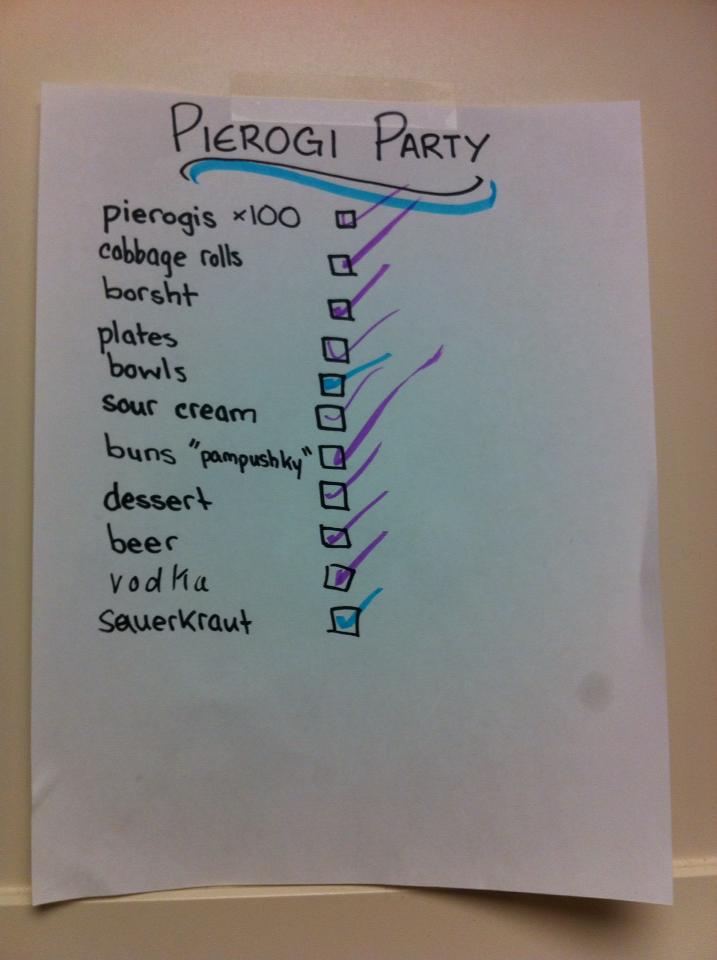 PIEROGI PARTY
pierogis ×100
cabbage rolls
borsht
plates
bowls
sour cream
buns "pampushky"
dessert
beer
vodka
sauerkraut